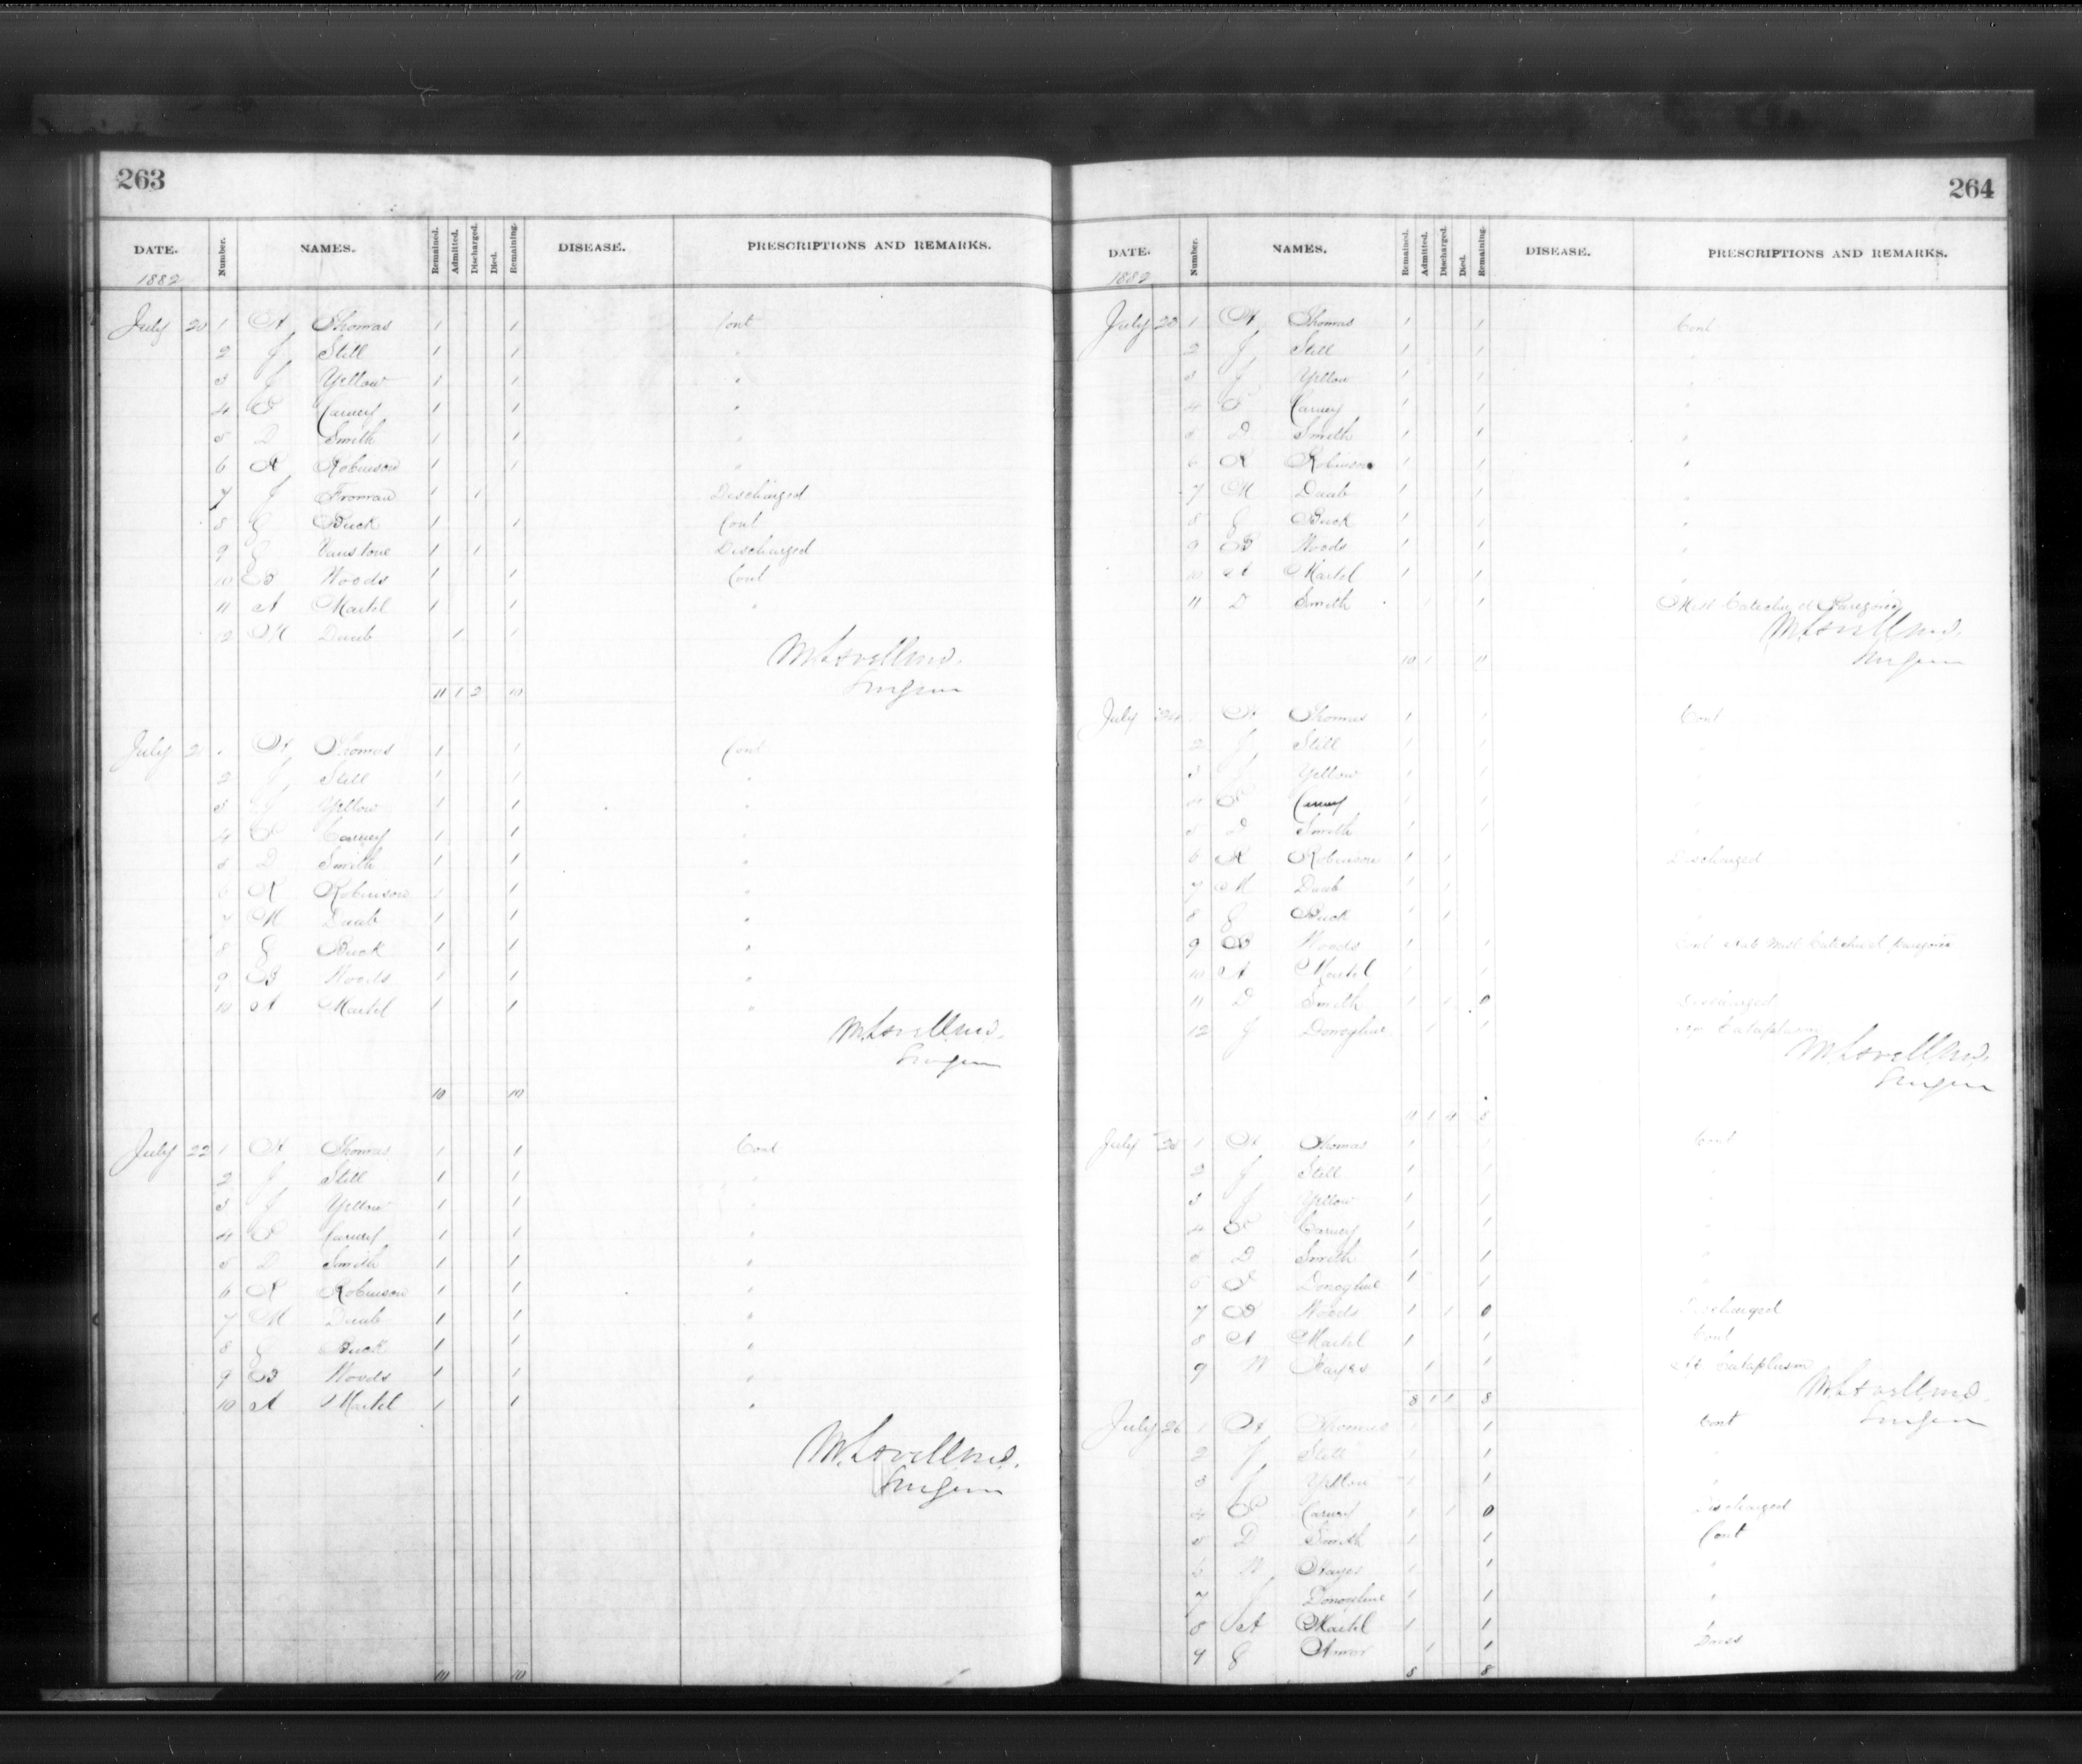 263
DATE. Number. NAMES. Remained. Admitted. Discharged. Died. Remaining. DISEASE. PRESCRIPTIONS AND REMARKS.
1882
July 20 1 A Thomas 1 1 Cont
2 J Still 1 1 "
3 J Yellow 1 1 "
4 P Carney 1 1 "
5 D Smith 1 1 "
6 R Robinson 1 1 "
7 J Froman 1 1 Discharged
8 G Buck 1 1 Cont
9 G Vanstone 1 1 Discharged
10 B Woods 1 1 Cont
11 A Martel 1 1 "
12 M Daub 1 1
M. Lavell M.D.
Surgeon
11 1 2 10
July 21 A Thomas 1 1 Cont
2 J Still 1 1 "
3 J Yellow 1 1 "
4 P Carney 1 1 "
5 D Smith 1 1 "
6 R Robinson 1 1 "
7 M Daub 1 1 "
8 G Buck 1 1 "
9 B Woods 1 1 "
10 A Martel 1 1 "
M. Lavell M.D.
Surgeon
10 10
July 22 1 A Thomas 1 1 Cont
2 J Still 1 1 "
3 J Yellow 1 1 "
4 P Carney 1 1 "
5 D Smith 1 1 "
6 R Robinson 1 1 "
7 M Daub 1 1 "
8 G Buck 1 1 "
9 B Woods 1 1 "
10 A Martel 1 1 "
M. Lavell M.D.
Surgeon
10 10
264
DATE. Number. NAMES. Remained. Admitted. Discharged. Died. Remaining. DISEASE. PRESCRIPTIONS AND REMARKS.
1882
July 23 1 A Thomas 1 1 Cont
2 J Still 1 1 "
3 J Yellow 1 1 "
4 P Carney 1 1 "
5 D Smith 1 1 "
6 R Robinson 1 1 "
7 M Daub 1 1 "
8 G Buck 1 1 "
9 B Woods 1 1 "
10 A Martel 1 1 "
11 D Smith 1 1 Mist Catechu et Paregoric
M. Lavell M.D.
Surgeon
10 1 11
July 24 A Thomas 1 1 Cont
2 J Still 1 1
3 J Yellow 1 1
4 P Carney 1 1
5 D Smith 1 1
6 R Robinson 1 1 Discharged
7 M Daub 1 1
8 G Buck 1 1 "
9 B Woods 1 1 Cont Mist Catechu et paregoric
10 A Martel 1 1
11 D Smith 1 1 0 Discharged
12 J Donoghue 1 1 Cataplasm
M. Lavell M.D.
Surgeon
11 1 4 8
July 25 1 A Thomas 1 1 Cont
2 J Still 1 1 "
3 J Yellow 1 1 "
4 P Carney 1 1 "
5 D Smith 1 1 "
6 J Donoghue 1 1 "
7 B Woods 1 1 0 Discharged
8 A Martel 1 1 Cont
9 W Hayes 1 1 Cataplasm
M. Lavell M.D.
8 1 1 8
Surgeon
July 26 1 A Thomas 1 1 Cont
2 J Still 1 1
3 J Yellow 1 1 "
4 P Carney 1 1 0 Discharged
5 D Smith 1 1 Cont
6 W Hayes 1 1 "
7 J Donoghue 1 1 "
8 A Martel 1 1 "
9 G 1 1
8 8